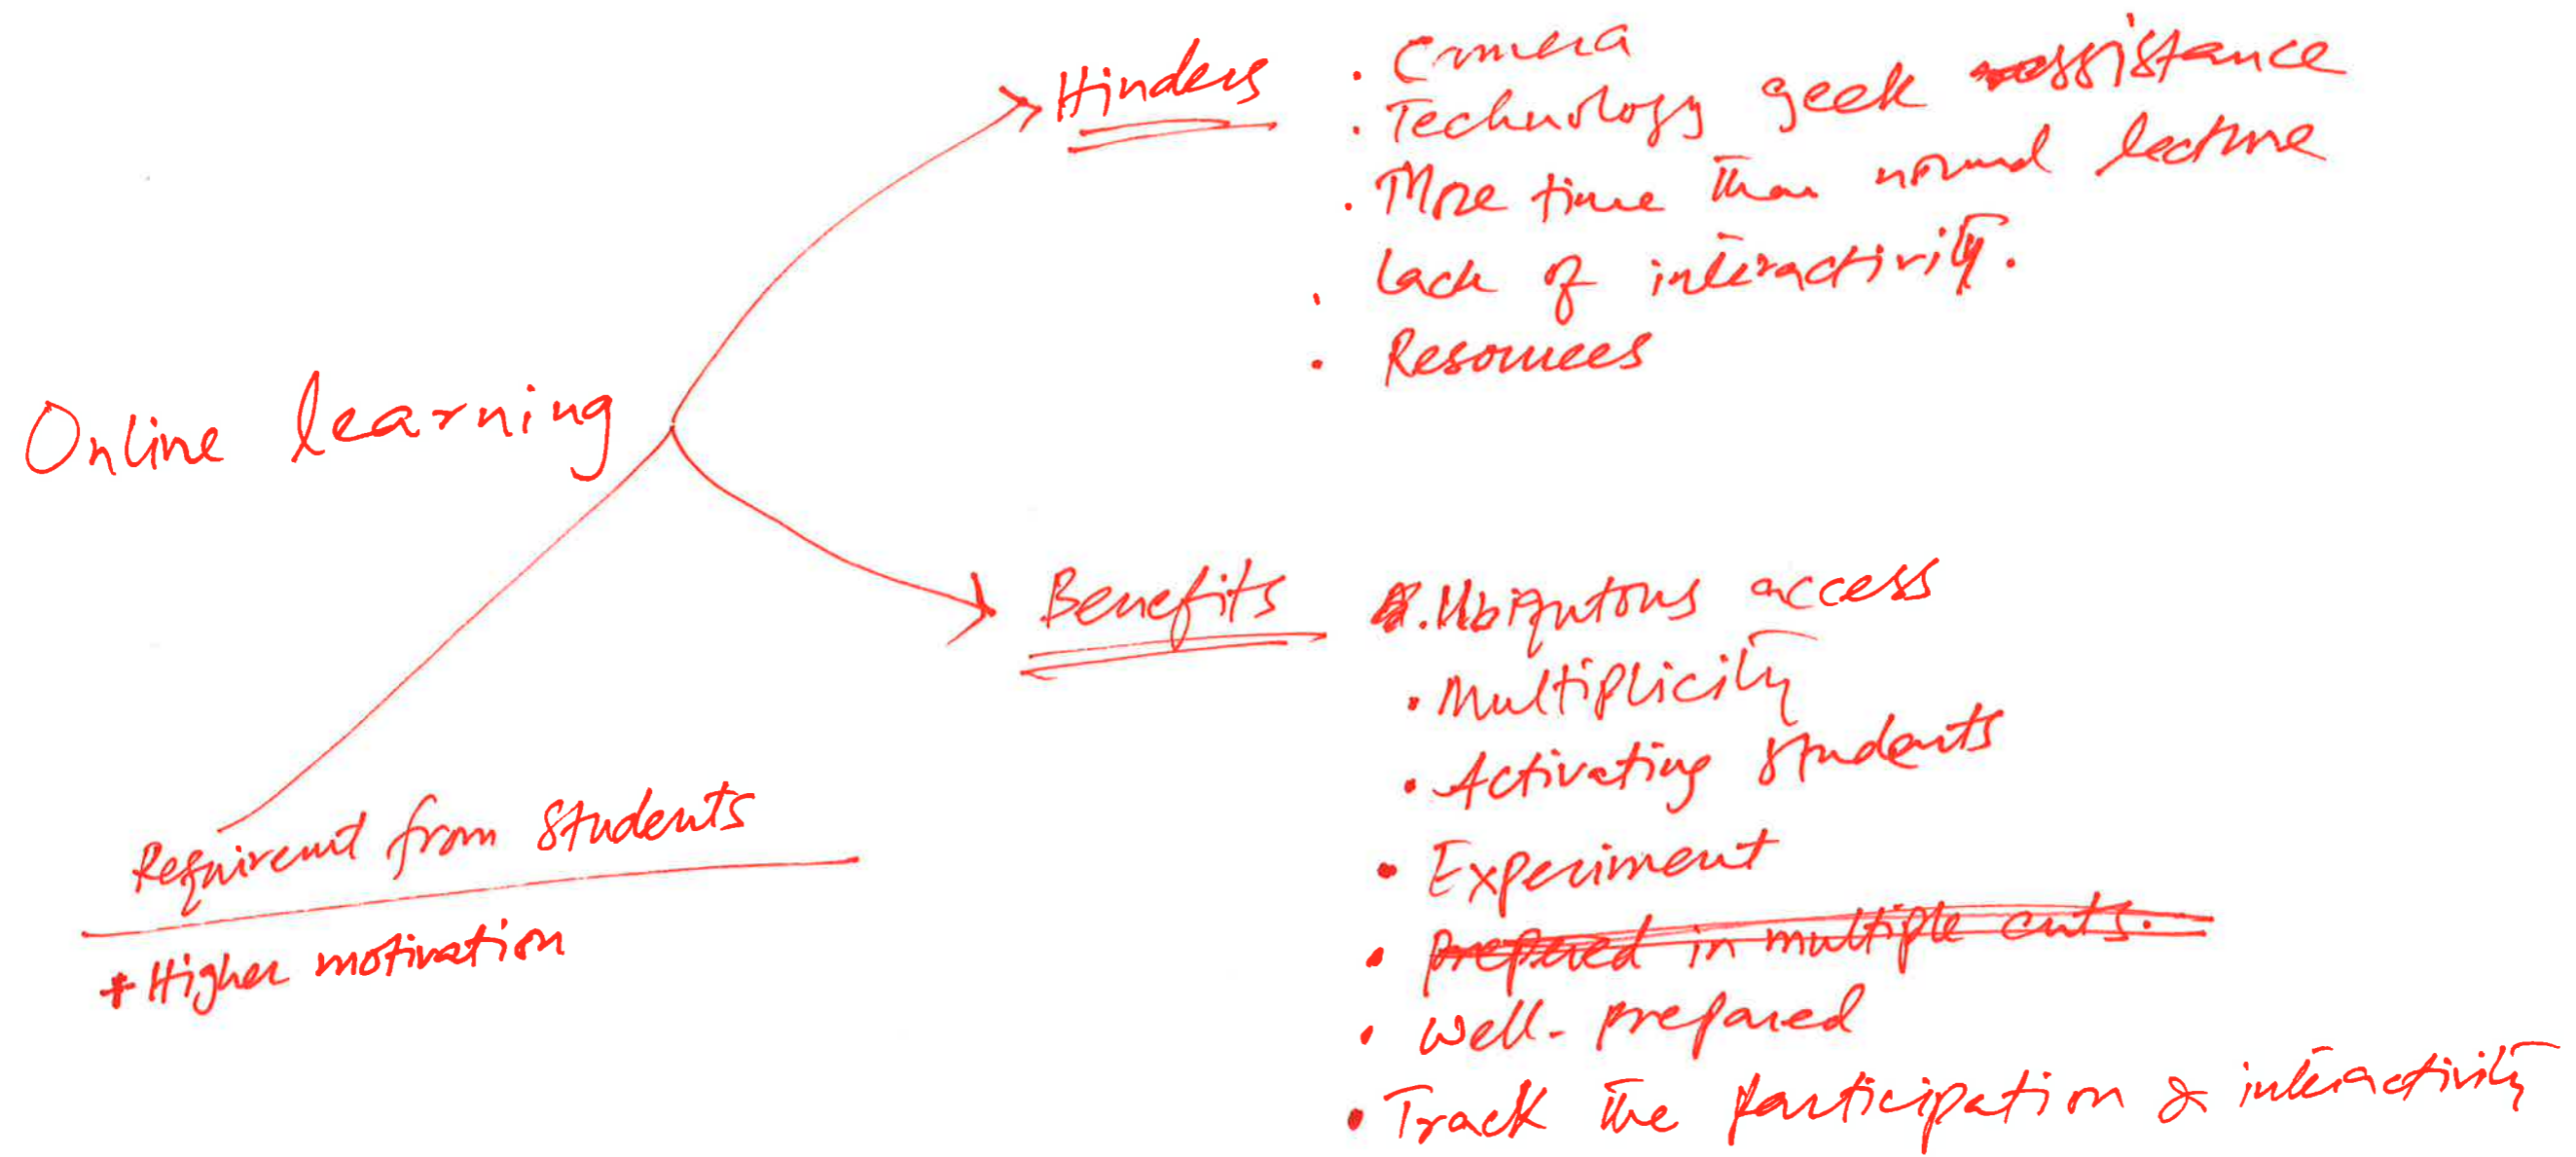 Hinders
• Camera
• Technology geek assistance
• More time than normal lecture
• Lack of interactivity.
• Resources
Online learning
Benefits
• Ubiqutous access
• Multiplicity
• Activating students
• Experiment
• prepared in multiple cuts.
• Well-prepared
• Track the participation & interactivity
Requirement from students
+ Higher motivation